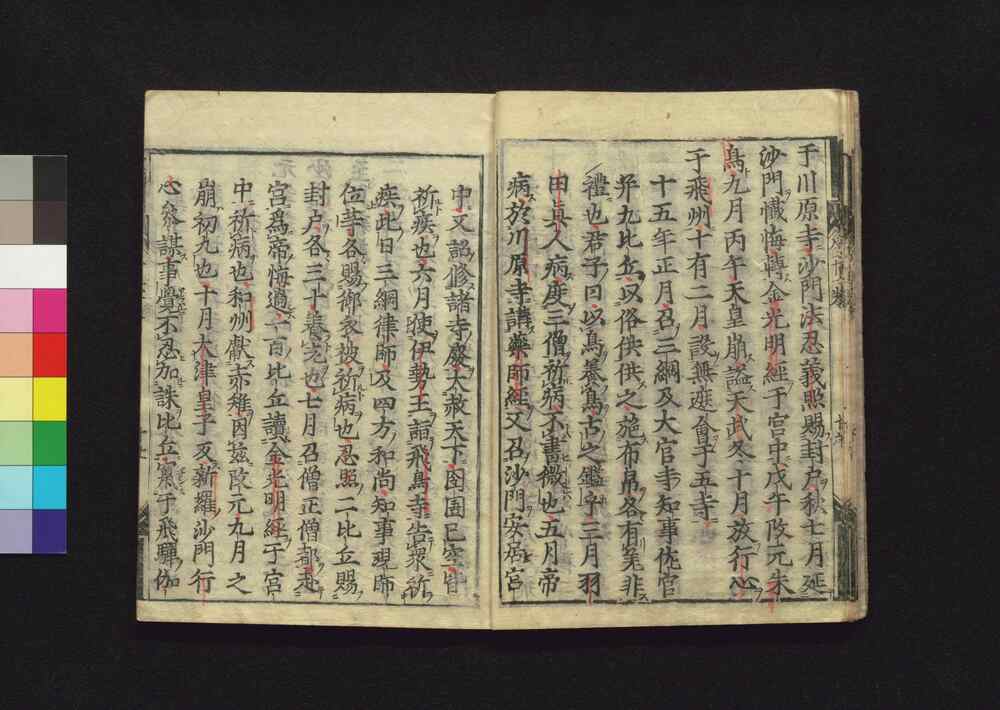 于川原寺沙門法忍義照賜封戸秋七月延
沙門懺悔轉金光明經于宮中戊午改元朱
鳥九月丙午天皇崩謚天武冬十月放行心
于飛州十有二月設無遮會于五寺
十五年正月召三綱及大官寺知事佐官
并九比丘以俗供供之施布帛各有差非
禮也君子曰以鳥養鳥古之鑑乎三月羽
田真人病度三僧祈病不書微也五月帝
病於川原寺講藥師經又召沙門安居宮
中又詔修諸寺廢大赦天下囹圄已空皆
祈疾也六月使伊勢王詣飛鳥寺告衆祈
疾此日三綱律師及四方和尚知事現師
位等各賜御衣被祈病也忍照二比丘賜
封户各三十養完也七月召僧正僧都赴
宮爲帝悔過一百比丘讀金光明經于宮
中祈病也和州獻赤雉因茲改元九月之
崩初九也十月大津皇子及新羅沙門行
心衆謀事覺不忍加誅比丘竄于飛驒伽